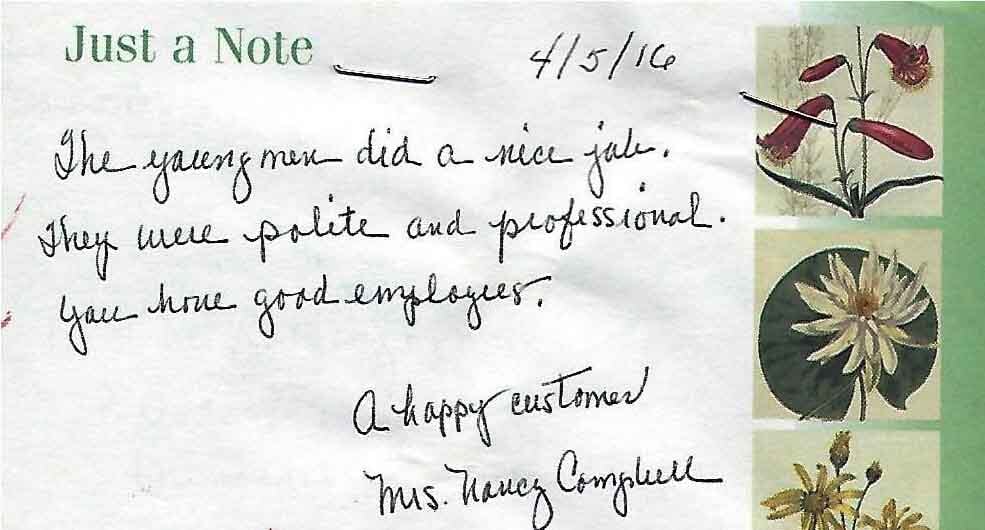 Just a Note
4/5/16
The young men did a nice job.
They were polite and professional.
You have good employees.
A happy customer
Mrs. Nancy Campbell